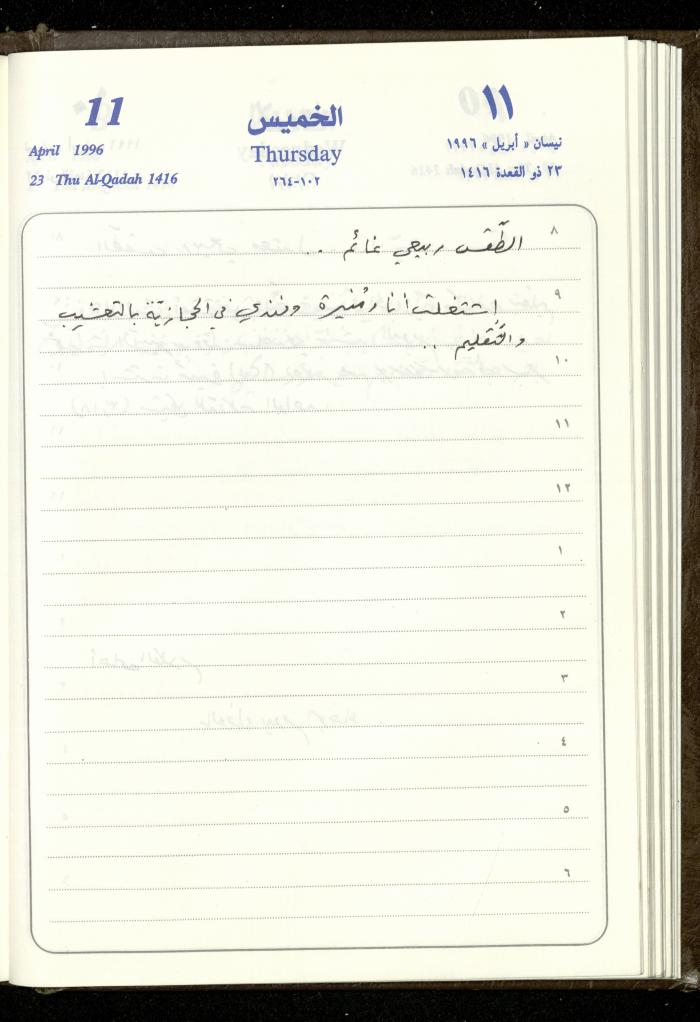 11
الخميس
١١
April 1996
Thursday
نيسان « أبريل » ١٩٩٦
23 Thu Al-Qadah 1416
٢٦٤-١٠٢
٢٣ ذو القعدة ١٤١٦
٨
الطّقس ربيعي غائم ..
٩
إشتغلت أنا ومُنيرة وفندي في الحجازيّة بالتعشيب
والتَّقليم ..
١٠
١١
١٢
١
٢
٣
٤
٥
٦